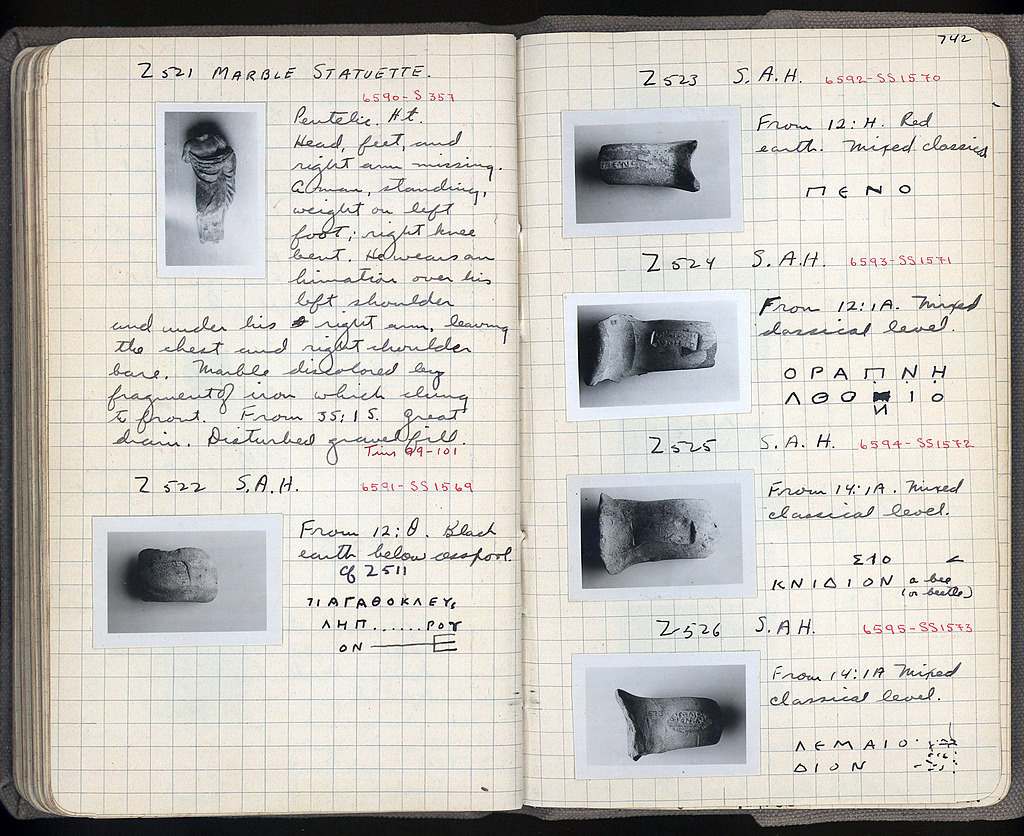 Z 521 MARBLE STATUETTE.
6590-S 357
Pentelic. Ht.
Head, feet, and
right arm missing.
A man, standing,
weight on left
foot; right knee
bent. He wears an
himation over his
left shoulder
and under his right arm, leaving
the chest and right shoulder
bare. Marble discolored by
fragment of iron which clung
to front. From 35:15. Great
drain. Disturbed gravel fill.
99-101
Z 522 S.A.H. 6591-SS1569
From 12:Θ. Black
earth below cesspool.
cf Z 511
ΑΓΑΘΟΚΛΕΥ
ΛΗΠ......ΡΟΥ
ΟΝ
742
Z 523 S.A.H. 6592-SS1570
From 12:H. Red
earth. Mixed classical
ΠΕΝΟ
Z 524 S.A.H. 6593-SS1571
From 12:1A. Mixed
classical level.
ΟΡΑΠΝΗ
ΛΘΟ ΙΟ
И
Z 525 S.A.H. 6594-SS1572
From 14:1A. Mixed
classical level.
ΚΝΙΔΙΟΝ a bee
(or beetle)
Z 526 S.A.H. 6595-SS1573
From 14:1A Mixed
classical level.
ΛΕΜΑΙΟ
ΔΙΟΝ